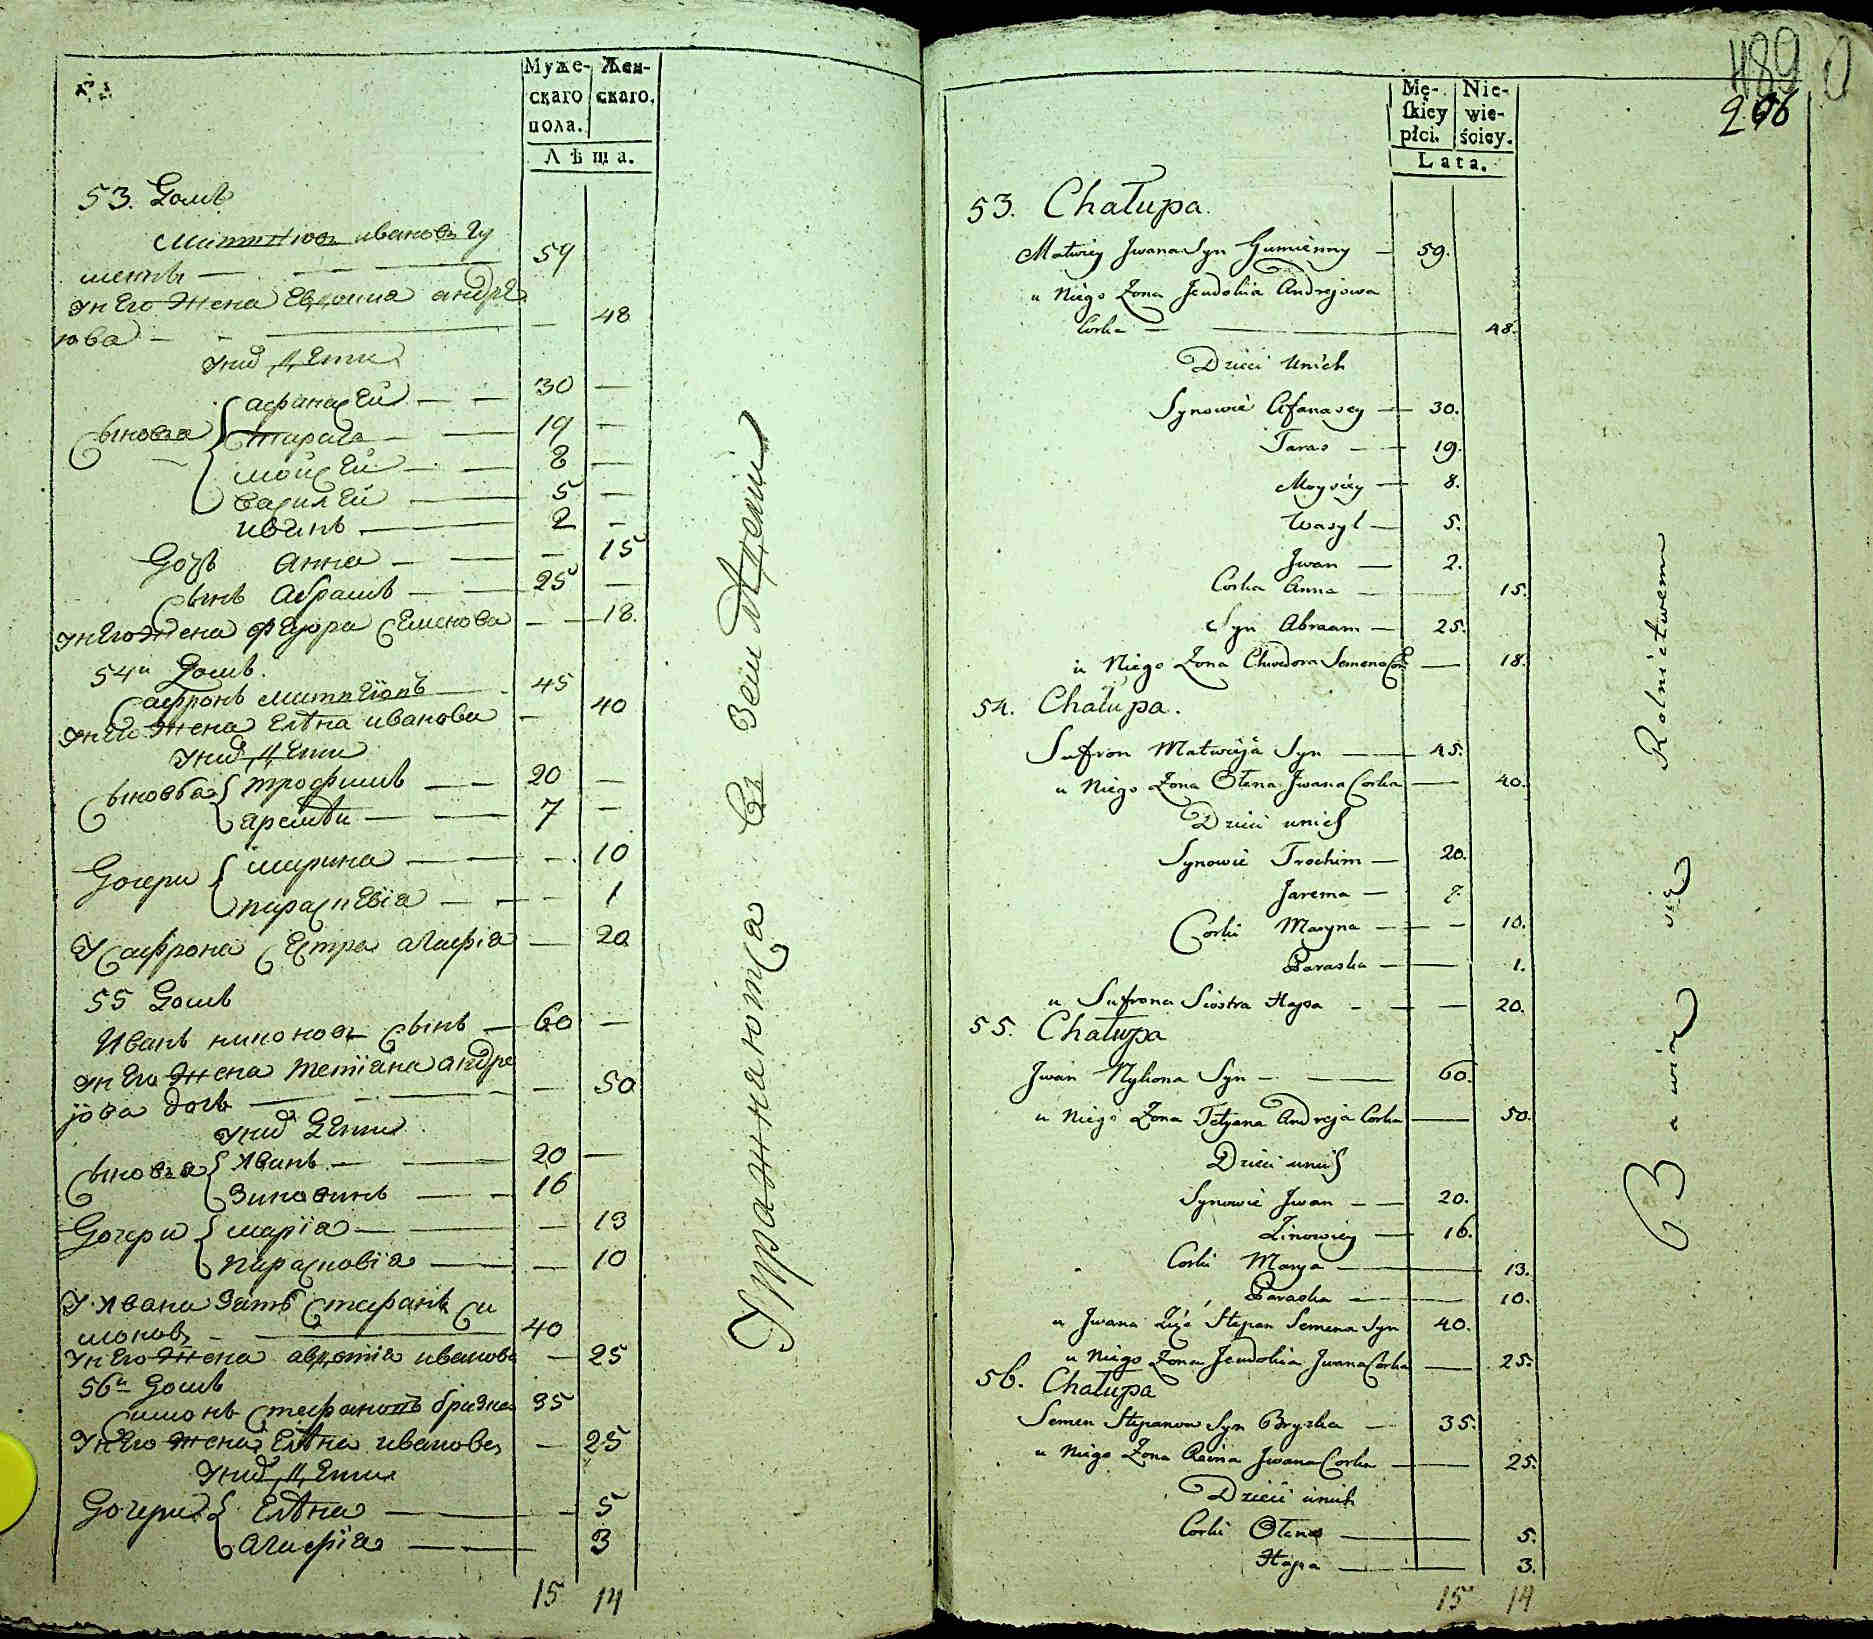 Муже-
скаго
пола.
Жен-
скаго.
Лѣта.
53. Домъ
Матвѣювъ ивановъ Гу
менны — 59
Унего жена Евдокиа андре
юва — 48
Унид дети
Сыновъа афанасей — 30 —
тарасъ — 19 —
мойсей — 8 —
василей — 5 —
иванъ — 2 —
Дочъ анна — — 15
Сынъ абрамъ — 25 —
Унего жена федора Семенова — 18.
54й Домъ.
Сафронъ матвеювъ — 45
Унего жена Елѣна иванова — 40
Унид дети
Сыновъа трофимъ — 20 —
яремѣи — 7 —
Дочери марина — — 10
парасцевїа — — 1
У Сафрона Сестра агафїа — 20
55 Домъ
Иванъ никоновъ Сынъ — 60 —
Унего жена тетїана андре
йова дочъ — — 50
Унид дети
Сыновъа Иванъ — 20 —
Зиновинъ — 16
Дочери марїа — — 13
Парасковїа — — 10
У Ивана зать Стефанъ Си
моновъ — 40
Унего жена авдотїа иванова — 25
56й Домъ
Симонъ Стефановъ бризка 35
Унего жена Елѣна иванова — 25
Унид дети
Дочери Елѣна — — 5
Агафїа — — 3
15 14
Упражняютса Въ Земледелии
489
206
Mę-
skiey
płci.
Nie-
wie-
ściey.
Lata.
53. Chałupa.
Matwiey Jwana Syn Humienny — 59.
u Niego Zona Jeudokia Andrejowa
Corka — 48.
Dzieci unich
Synowie Afanasey — 30.
Taras — 19.
Moysiey — 8.
Wasyl — 5.
Jwan — 2.
Corka Anna — 15.
Syn Abraam — 25.
u Niego Zona Chwedora Semena Cor. — 18.
54. Chałupa.
Sufron Matwieja Syn — 45.
u Niego Zona Ołena Jwana Corka — 40.
Dzieci unich
Synowie Trochim — 20.
Jarema — 7.
Corki Maryna — 10.
Paraska — 1.
u Sufrona Siostra Hapa — 20.
55. Chałupa
Jwan Nykona Syn — 60.
u Niego Zona Tetyana Andreja Corka — 50.
Dzieci unich
Synowie Jwan — 20.
Zinowiey — 16.
Corki Marya — 13.
Paraska — 10.
u Jwana Zięć Stepan Semena Syn 40.
u Niego Zona Jeudokia Jwana Corka — 25.
56. Chałupa
Semen Stepanow Syn Bryzka — 35.
u Niego Zona Jwana Corka — 25.
Dzieci unich
Corki Ołena — 5.
Hapa — 3.
15 14
Bawią się Rolnictwem